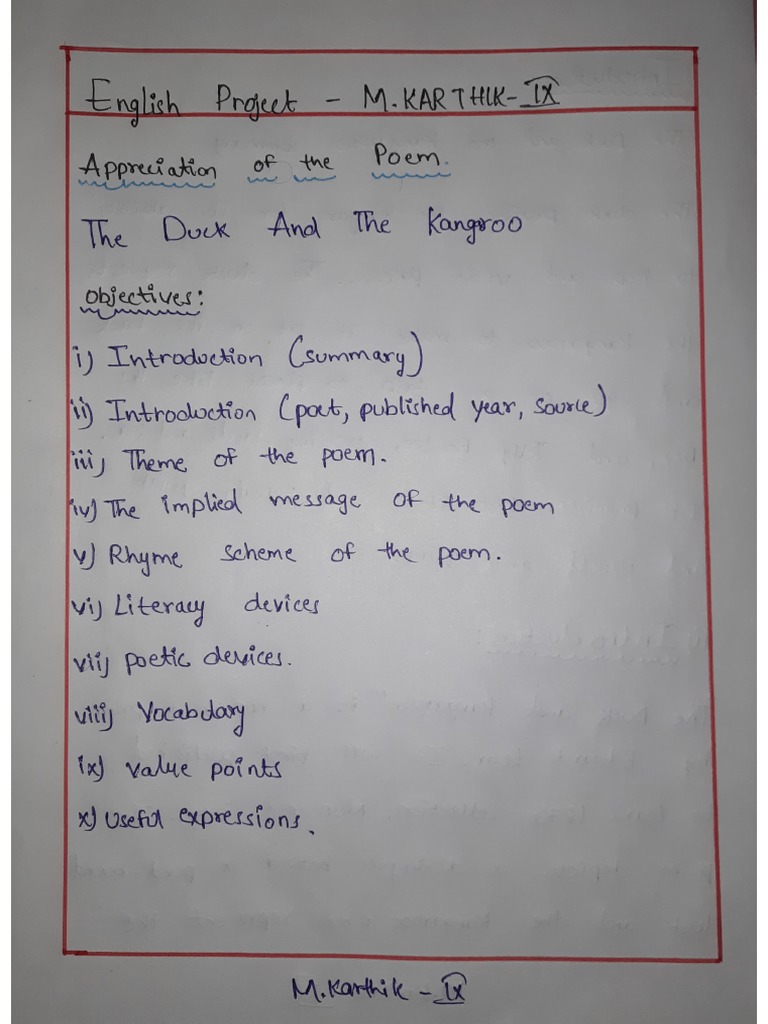 English Project - M.KARTHIK-IX
Appreciation of the Poem.
The Duck And The Kangroo
Objectives:
i) Introduction (summary)
ii) Introduction (poet, published year, source)
iii) Theme of the poem.
iv) The implied message of the poem
v) Rhyme scheme of the poem.
vi) Literacy devices
vii) poetic devices.
viii) Vocabulary
ix) value points
x) Useful expressions.
M.Karthik - IX